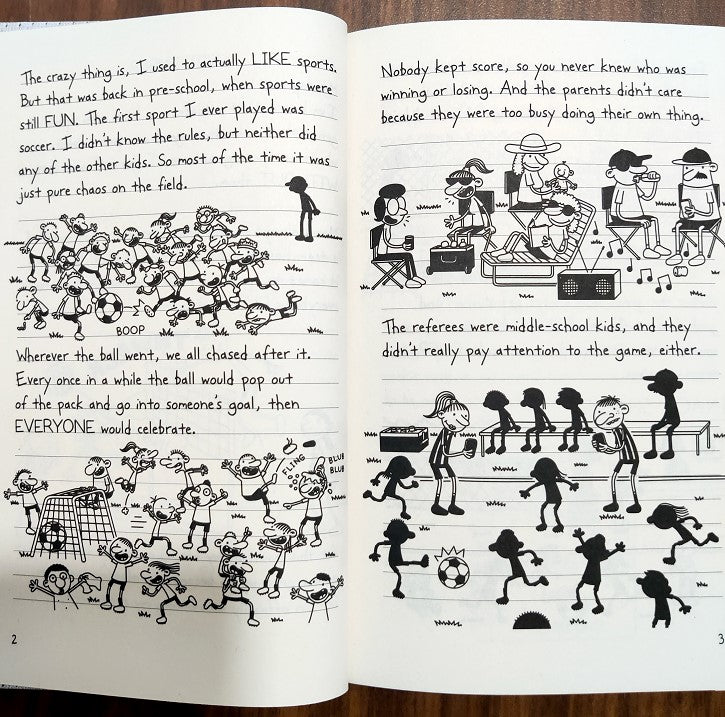 The crazy thing is, I used to actually LIKE sports.
But that was back in pre-school, when sports were
still FUN. The first sport I ever played was
soccer. I didn't know the rules, but neither did
any of the other kids. So most of the time it was
just pure chaos on the field.
BOOP
Wherever the ball went, we all chased after it.
Every once in a while the ball would pop out
of the pack and go into someone's goal, then
EVERYONE would celebrate.
FLING
BLUB
BLUB
2
Nobody kept score, so you never knew who was
winning or losing. And the parents didn't care
because they were too busy doing their own thing.
The referees were middle-school kids, and they
didn't really pay attention to the game, either.
3